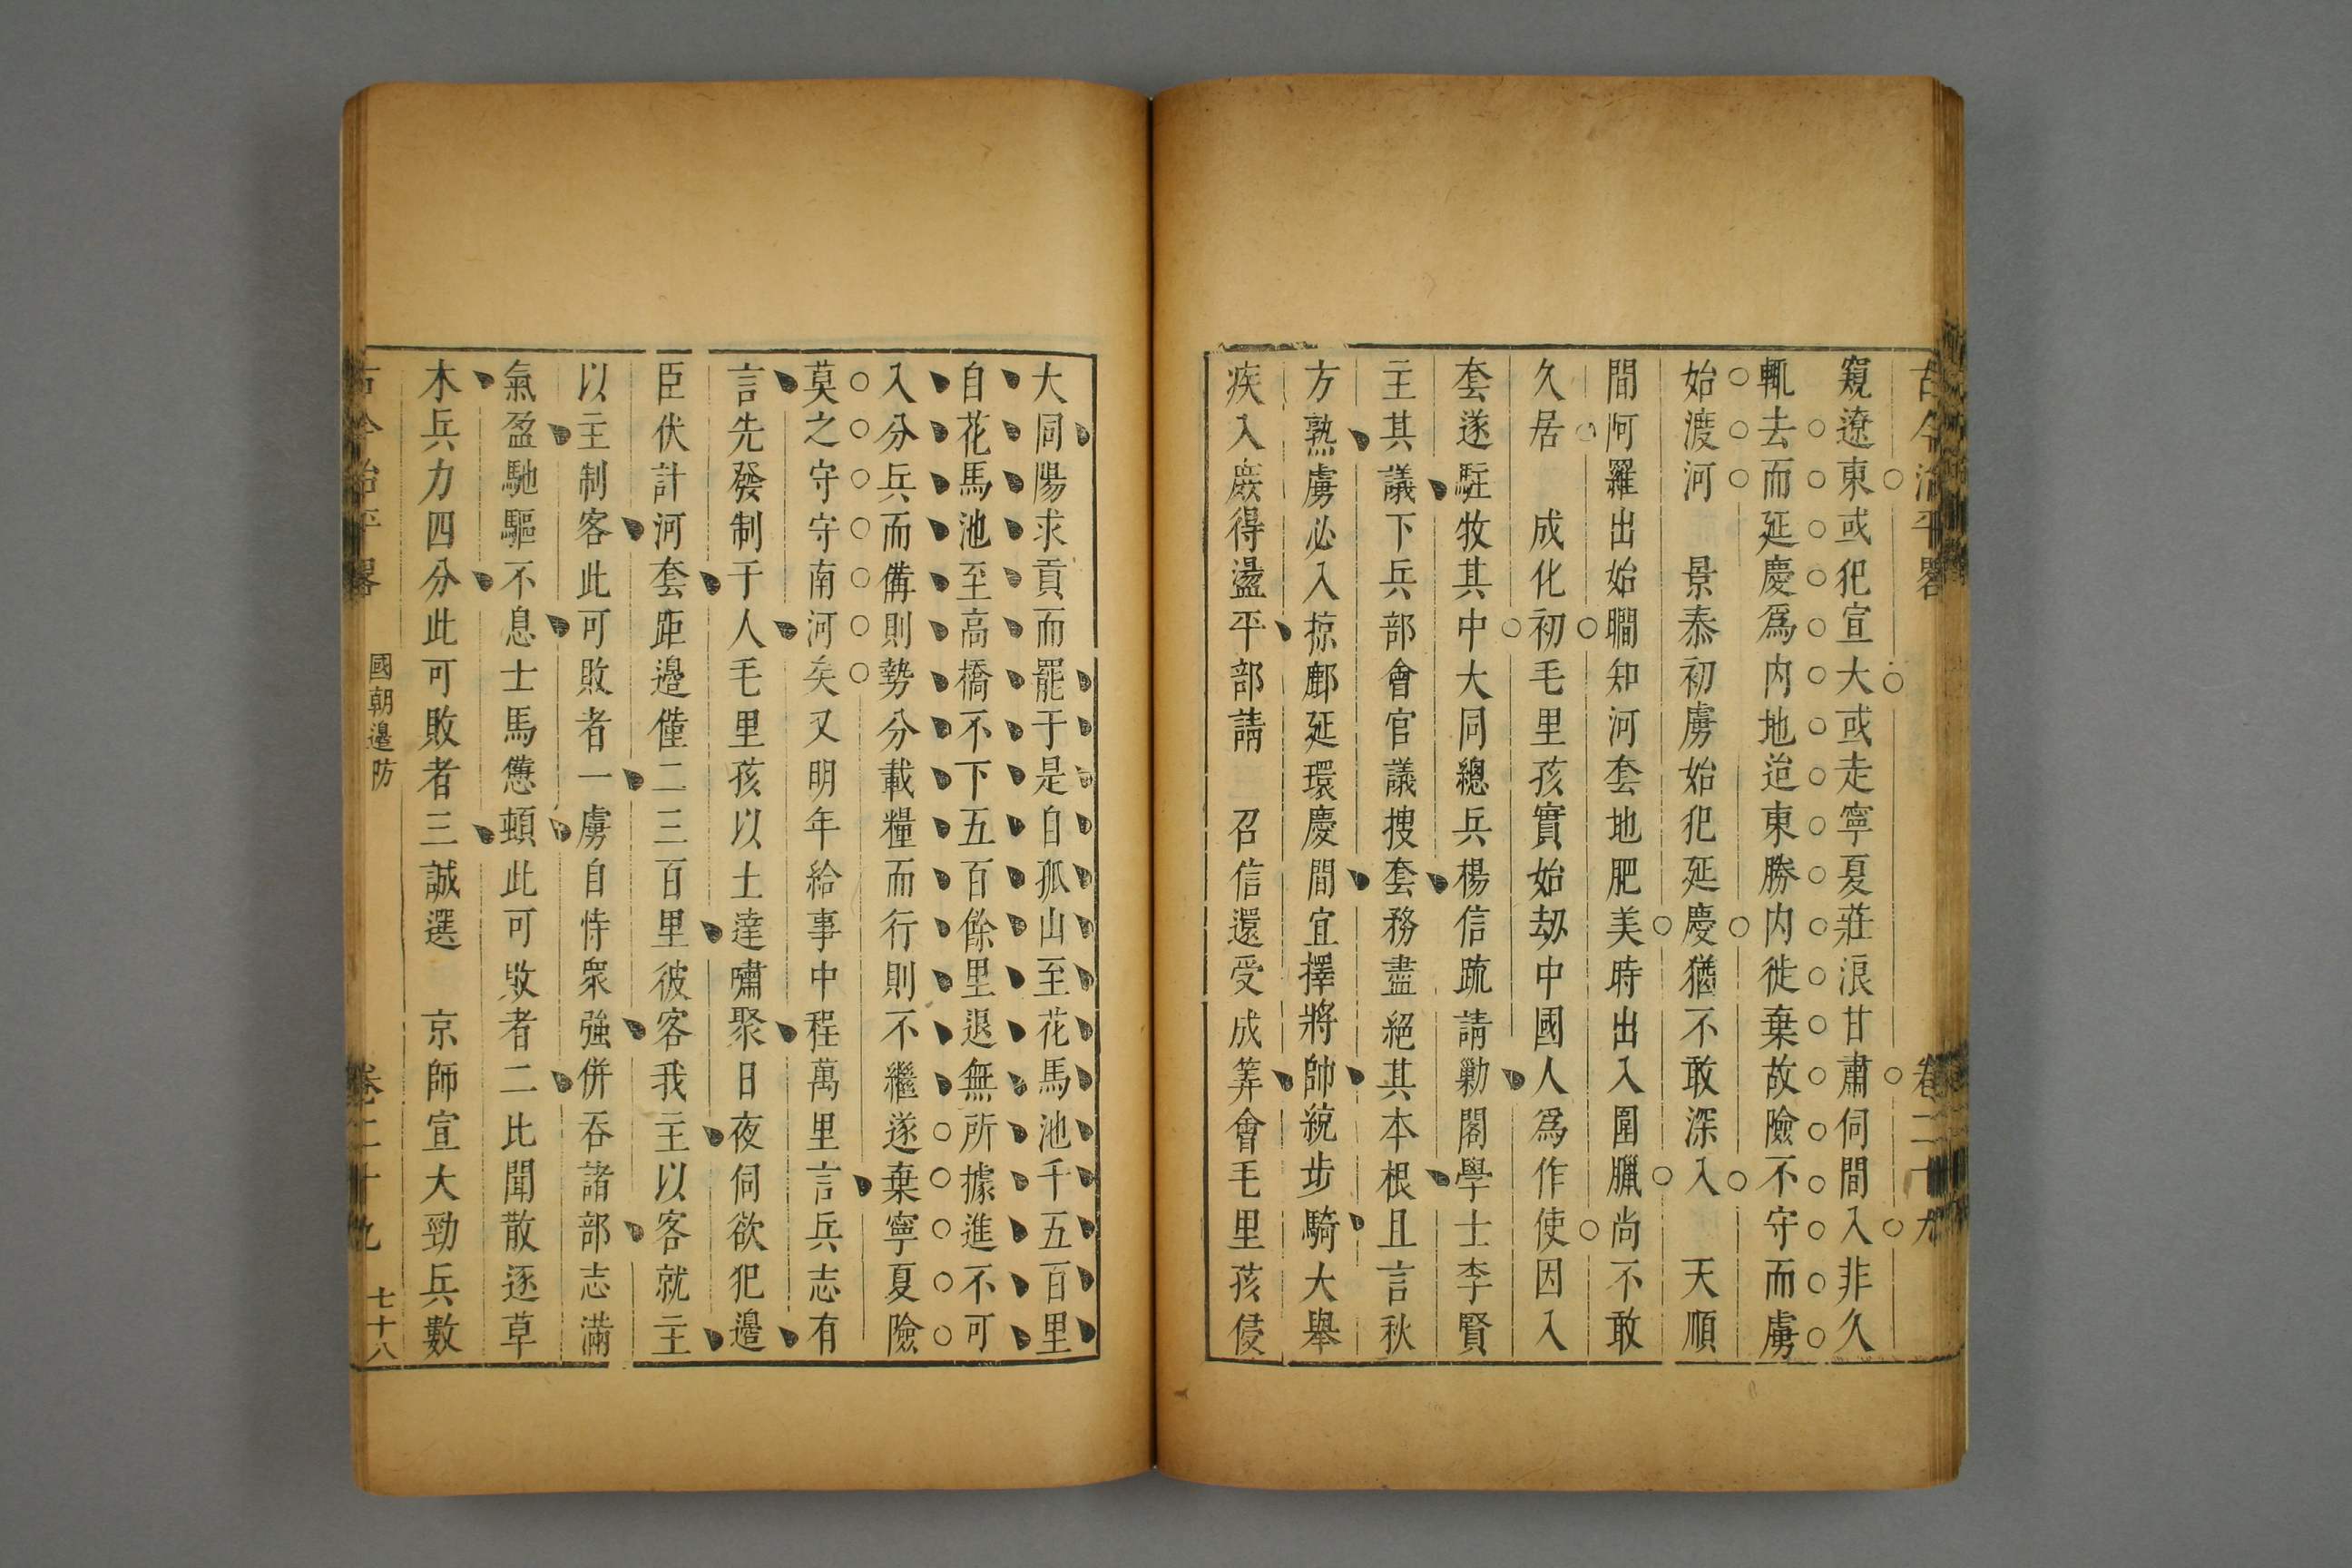 古今治平畧 卷二十九
窺遼東或犯宣大或走寧夏莊浪甘肅伺間入非久
輒去而延慶爲内地迨東勝内徙棄故險不守而虜
始渡河 景泰初虜始犯延慶猶不敢深入 天順
間阿羅出始矙知河套地肥美時出入圍臘尚不敢
久居 成化初毛里孩實始刼中國人爲作使因入
套遂駐牧其中大同總兵楊信疏請勦閣學士李賢
主其議下兵部會官議搜套務盡絕其本根且言秋
方熟虜必入掠鄜延環慶間宜擇將帥統步騎大舉
疾入廠得盪平部請 召信還受成筭會毛里孩侵
大同陽求貢而罷于是自孤山至花馬池千五百里
自花馬池至高橋不下五百餘里退無所據進不可
入分兵而備則勢分載糧而行則不繼遂棄寧夏險
莫之守守南河矣又明年給事中程萬里言兵志有
言先發制于人毛里孩以土達嘯聚日夜伺欲犯邊
臣伏計河套距邊僅二三百里彼客我主以客就主
以主制客此可敗者一虜自恃衆強併吞諸部志滿
氣盈馳驅不息士馬憊頓此可敗者二比聞散逐草
木兵力四分此可敗者三誠選 京師宣大勁兵數
古今治平畧 國朝邊防 卷二十九 七十八